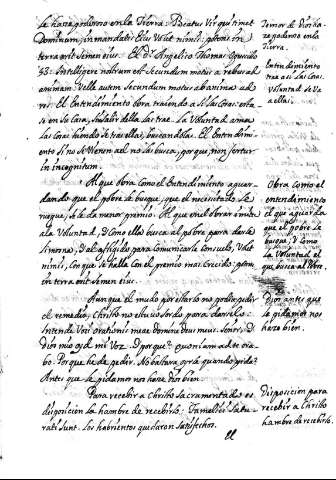 le haze poderoso en la Tierra: Beatus Vir qui timet
Dominum, in mandatis Eius Volet nimis: potens in
terra erit semen eius. El Dr. Angelico Thomas Opusculo
53: Intelligere nostrum est secundum motus a rebus ad
animam. Velle autem secundum motus ab anima ad
res. El Entendimiento obra trayendo a si las Cosas: esta
se en su Casa, sin salir della las trae. La Voluntad ama
las Cosas hiendo se tras ellas, buscandolas. El Entendimi-
ento si no se Vienen a el no las busca, porque, non fertur
in incognitum.
Al que obra como el Entendimiento aguar-
dando que el pobre le busque, que el necesitado le
ruegue, se le da menor premio. Al que en el obrar imita
a la Voluntad,
limosna, al afligido para comunicarle consuelo, Volet
nimis, con que se halla con el premio mas crecido: potens
in terra erit semen eius.
Aunque el mudo por serlo no podia pedir
el remedio, Christo no estuvo sordo para darselo:
Intende Voci orationis meae Domine Deus meus.
Dios mio oyd mi Voz. Y porque? quoniam ad te ora-
bo. Porque he de pedir. No bastava quando pida?
Antes que le pidamos nos haze Dios bien.
Para recebir a Christo sacramentado es
disposicion la hambre de recebirlo: Famelici satu-
rati sunt. Los hambrientos quedaron satisfechos.
el
Temor de Dios ha-
ze poderoso en la
Tierra.
Entendimiento
trae a si las Cosas
Voluntad se Va
a ellas.
Obra como el
entendimiento
el que aguarda
que el pobre le
busque, y como
la Voluntad el
que busca al pobre.
Dios antes que
le pidamos nos
haze bien.
Disposicion para
recebir a Christo
hambre de recebirlo.